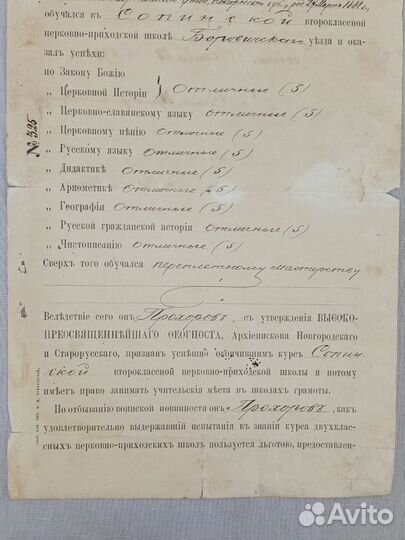 Новгородской губ., род. 29 Марта 1881 г.
обучался въ Сопинской второклассной
церковно-приходской школѣ Боровичскаго уѣзда и ока-
залъ успѣхи:
по Закону Божію
„ Церковной Исторіи } Отличные (5)
„ Церковно-славянскому языку отличные (5)
„ Церковному пѣнію отличные (5)
„ Русскому языку отличные (5)
„ Дидактикѣ отличные (5)
„ Ариѳметикѣ отличные (5)
„ Географіи отличные (5)
„ Русской гражданской исторіи отличные (5)
„ Чистописанію отличные (5)
Сверхъ того обучался переплетному мастерству
№ 325
Вслѣдствіе сего онъ Прохоровъ, съ утвержденія ВЫСОКО-
ПРЕОСВЯЩЕННѢЙШАГО ѲЕОГНОСТА, Архіепископа Новгородскаго
и Старорусскаго, признанъ успѣшно окончившимъ курсъ Сопин-
ской второклассной церковно-приходской школы и потому
имѣетъ право занимать учительскія мѣста въ школахъ грамоты.
По отбыванію воинской повинности онъ Прохоровъ, какъ
удовлетворительно выдержавшій испытанія въ знаніи курса двухклас-
сныхъ церковно-приходскихъ школъ пользуется льготою, предоставлен-
Avito